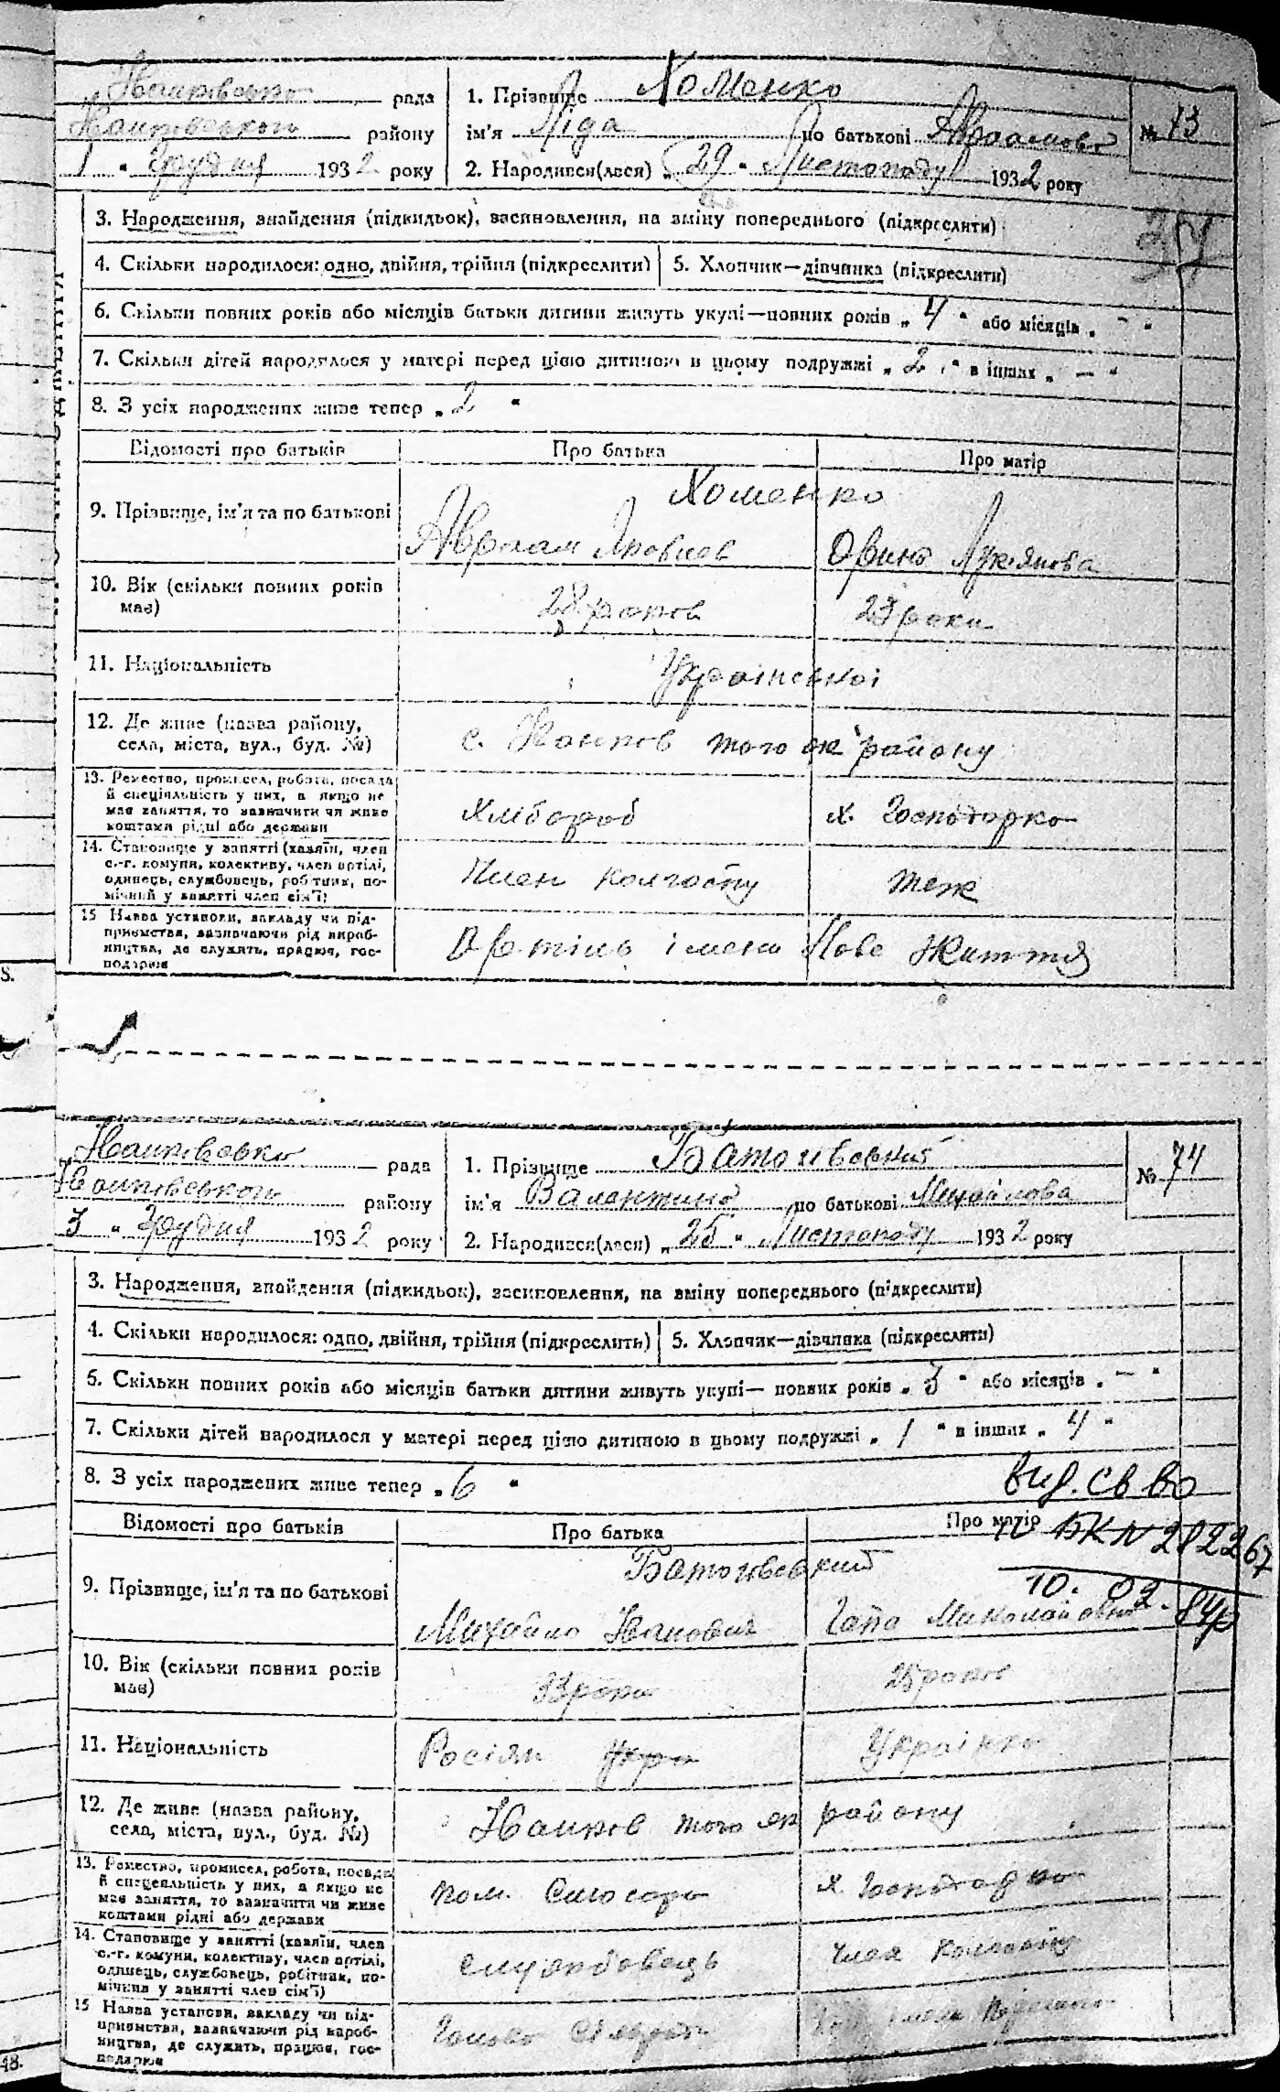 рада
району
1 " Грудня 1932 року
1. Прізвище Хоменко
ім'я Ліда по батькові Авраамова
2. Народився(лася) „29" Листопаду 1932 року
№ 73
37
3. Народження, знайдення (підкидьок), засиновлення, на зміну попереднього (підкреслити)
4. Скільки народилося: одно, двійня, трійня (підкреслити) 5. Хлопчик—дівчинка (підкреслити)
6. Скільки повних років або місяців батьки дитини живуть укупі—повних років „4" або місяців „—"
7. Скільки дітей народилося у матері перед цією дитиною в цьому подружжі „2" в інших „—"
8. З усіх народжених живе тепер „2"
Відомості про батьків Про батька Про матір
9. Прізвище, ім'я та по батькові Хоменко
Авраам Яковлев Орина Лук'янова
10. Вік (скільки повних років
має) 28 років 23 роки
11. Національність Української
12. Де живе (назва району,
села, міста, вул., буд. №) с. того ж району
13. Ремество, промисел, робота, посада
й спеціяльність у них, а якщо не
має заняття, то зазначити чи живе
коштами рідні або держави
Хлібороб х. Господарка
14. Становище у занятті (хазяїн, член
с.-г. комуни, колективу, член артілі,
одинець, службовець, робітник, по-
мічний у занятті член сім'ї)
Член колгоспу теж
15 Назва установи, закладу чи під-
приємства, зазначаючи рід вироб-
ництва, де служить, працює, гос-
подарює
Артіль імени Нове Життя
рада
району
3 " Грудня 1932 року
1. Прізвище Батогивський
ім'я Валентина по батькові Михайлова
2. Народився(лася) „25" Листопаду 1932 року
№ 74
3. Народження, знайдення (підкидьок), засиновлення, на зміну попереднього (підкреслити)
4. Скільки народилося: одно, двійня, трійня (підкреслить) 5. Хлопчик—дівчинка (підкреслити)
6. Скільки повних років або місяців батьки дитини живуть укупі— повних років „3" або місяців „—"
7. Скільки дітей народилося у матері перед цією дитиною в цьому подружжі „1" в інших „4"
8. З усіх народжених живе тепер „6"
вид. св во
IV БК N 282267
10. 02. 84р
Відомості про батьків Про батька Про матір
9. Прізвище, ім'я та по батькові Батогивский
Михайло Іванович Гапа Миколаївна
10. Вік (скільки повних років
має) 33 роки 25 років
11. Національність Росіян Укра Українка
12. Де живе (назва району,
села, міста, вул., буд. №) того ж району
13. Ремество, промисел, робота, посада
й спеціяльність у них, а якщо не
має заняття, то зазначити чи живе
коштами рідні або держави
пом. Слюсаря х. Господарка
14. Становище у занятті (хазяїн, член
с.-г. комуни, колективу, член артілі,
одинець, службовець, робітник, по-
мічний у занятті член сім'ї)
службовець член колгоспу
15 Назва установи, закладу чи під-
приємства, зазначаючи рід вироб-
ництва, де служить, працює, гос-
подарює